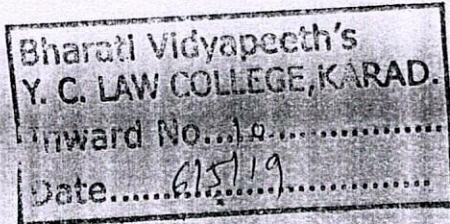 Bharati Vidyapeeth's
Y. C. LAW COLLEGE, KARAD.
Inward No...10...............
Date......6/5/19..............